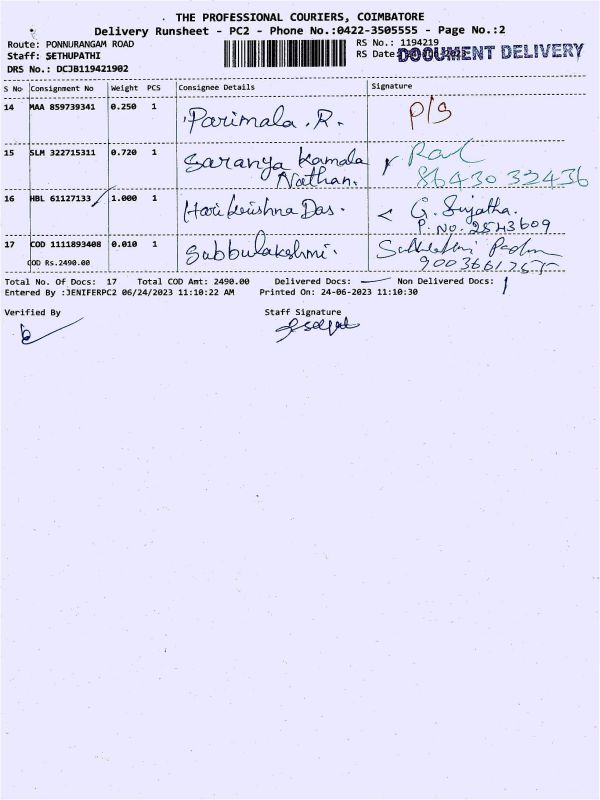 THE PROFESSIONAL COURIERS, COIMBATORE
Delivery Runsheet - PC2 - Phone No.:0422-3505555 - Page No.:2
Route: PONNURANGAM ROAD
Staff: SETHUPATHI
DRS No.: DCJB119421902
RS No.: 1194219
RS Date:
DOCUMENT DELIVERY
S No Consignment No Weight PCS Consignee Details Signature
14 MAA 859739341 0.250 1 Parimala . R. P/S
15 SLM 322715311 0.720 1 Saranya Kamala
Nathan.
86430 32436
16 HBL 61127133 1.000 1 Hari krishna Das. G. Sujatha.
P. No. 2543609
17 COD 1111893408 0.010 1 Subbulakshmi.
COD Rs.2490.00
Total No. Of Docs: 17 Total COD Amt: 2490.00 Delivered Docs: Non Delivered Docs:
Entered By :JENIFERPC2 06/24/2023 11:10:22 AM Printed On: 24-06-2023 11:10:30
Verified By Staff Signature